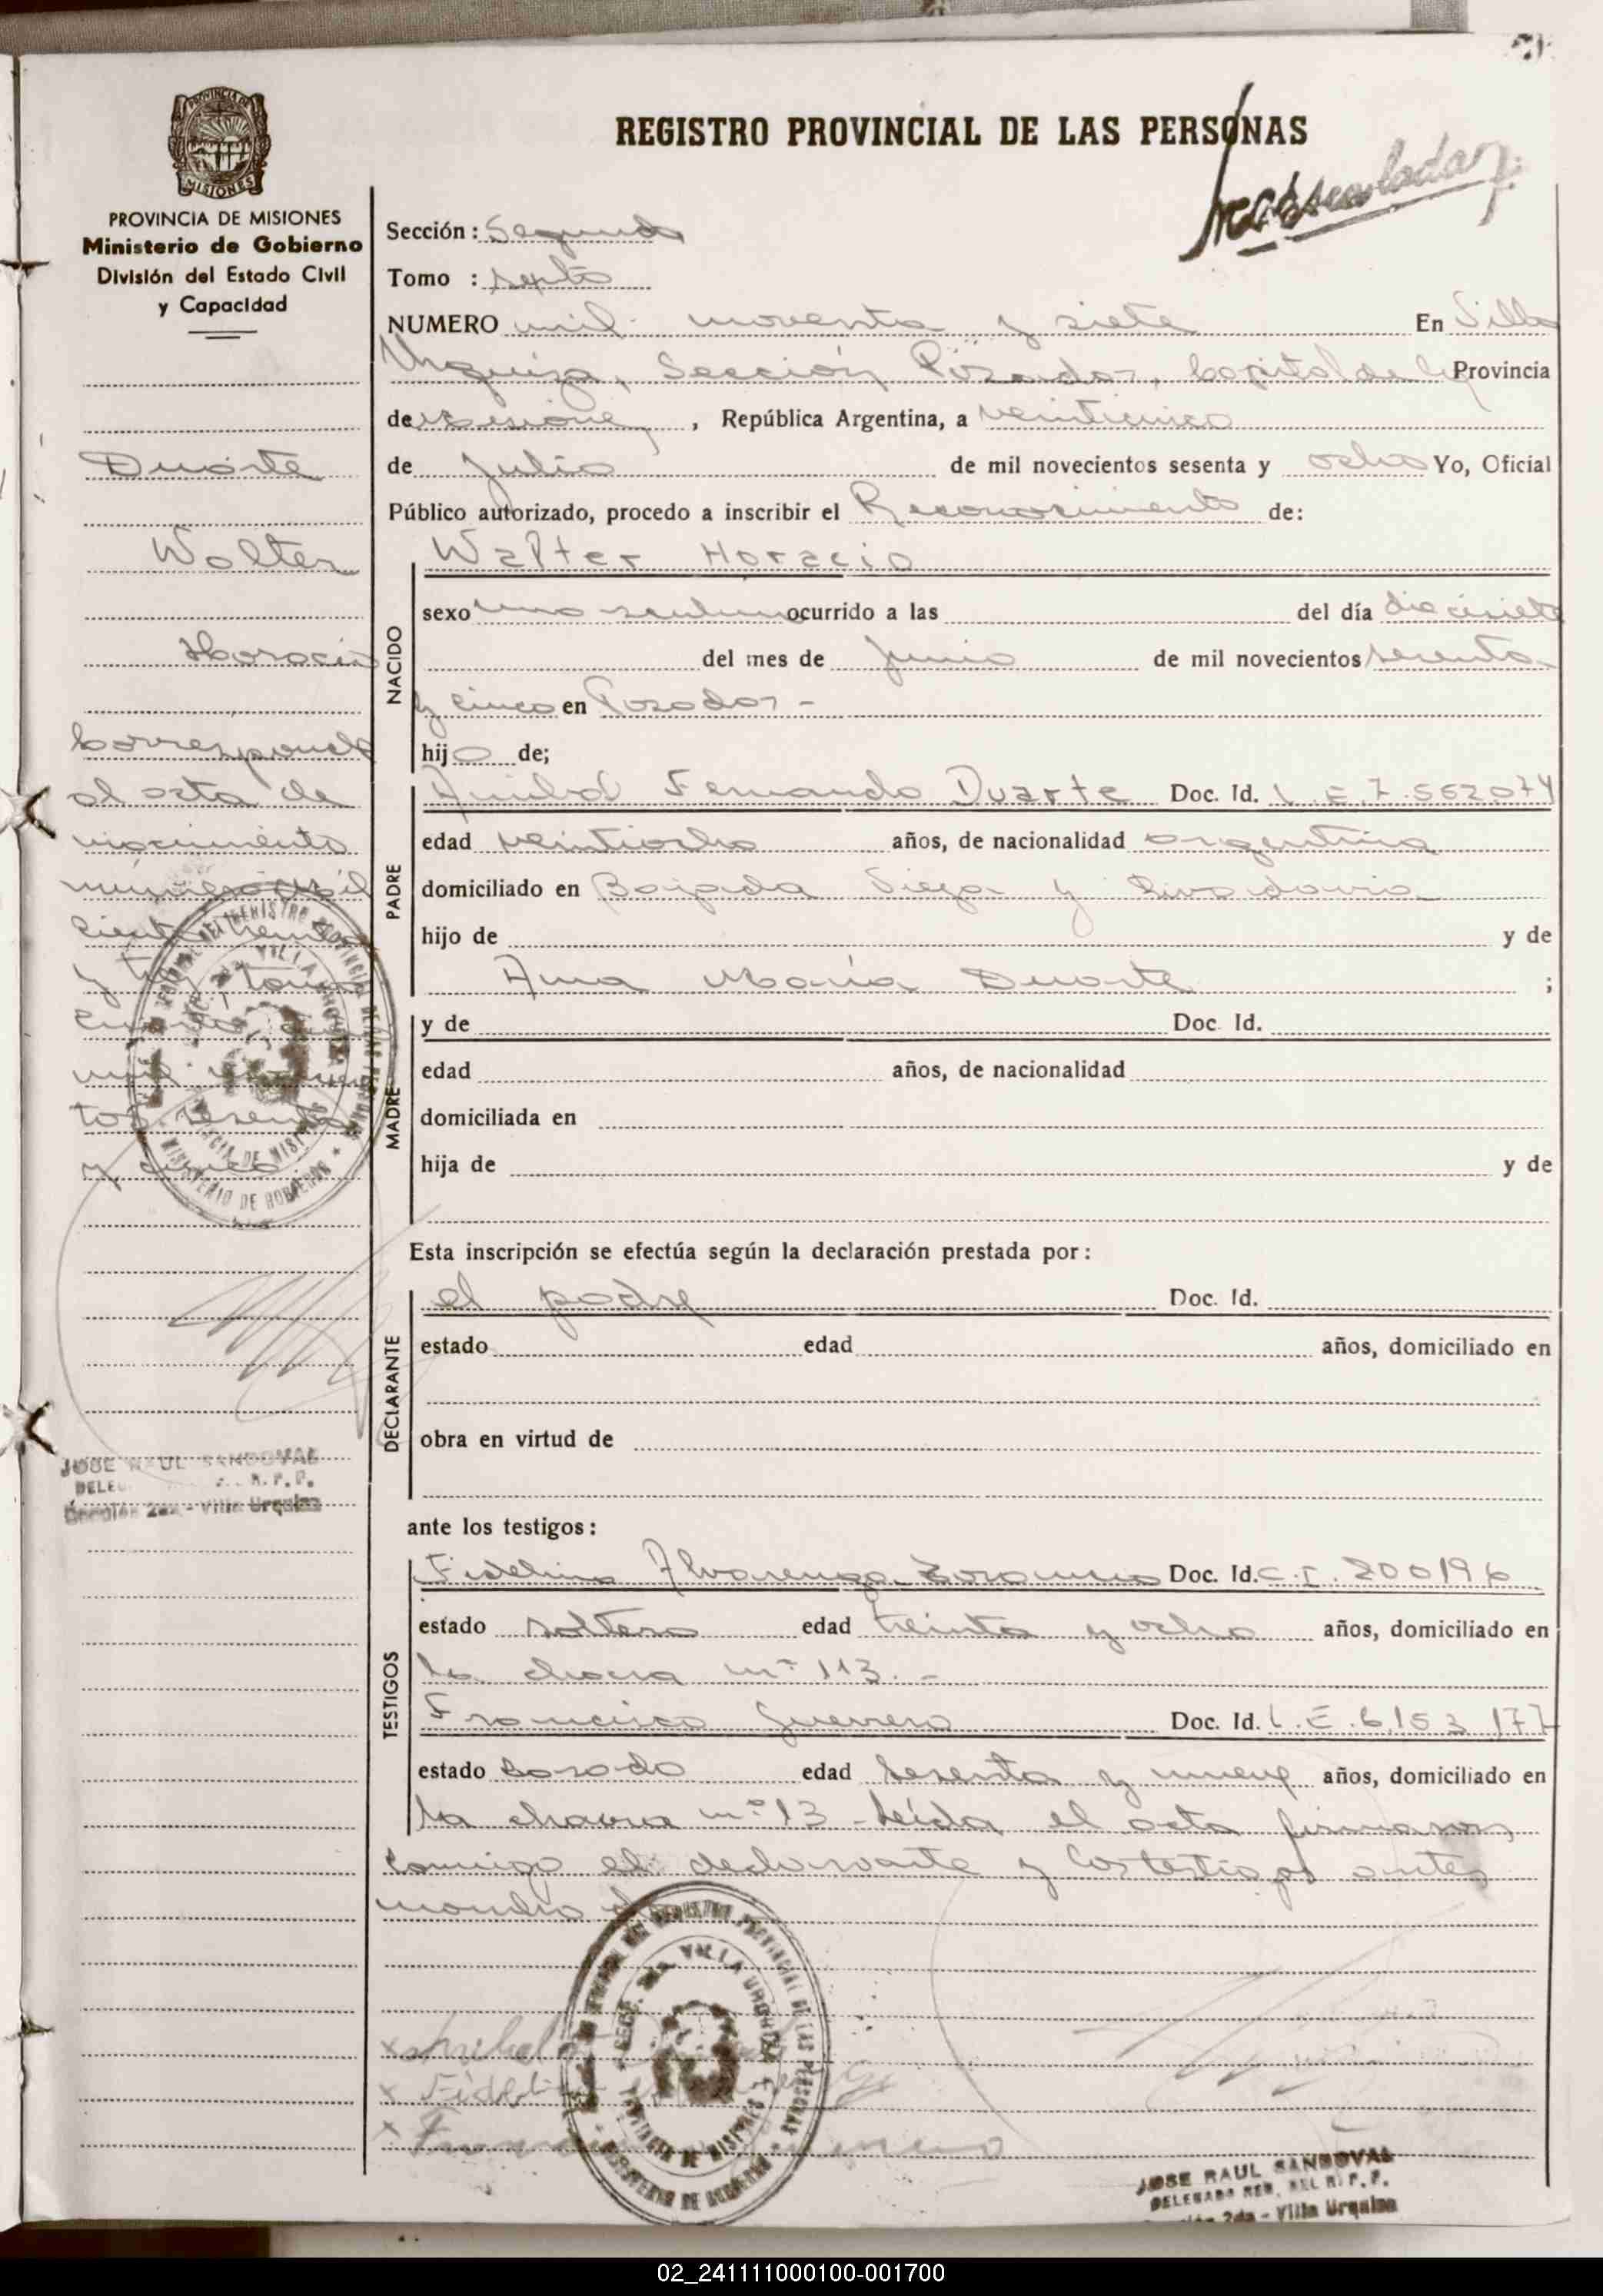 REGISTRO PROVINCIAL DE LAS PERSONAS
PROVINCIA DE
MISIONES
PROVINCIA DE MISIONES
Ministerio de Gobierno
División del Estado Civil
y Capacidad
Duarte
Walter
Horacio
Corresponde
al acta de
nacimiento
número mil
ciento treinta
y tres tomo
cuarto
mil novecien
tos sesenta
y cinco
JOSE RAUL SANDOVAL
DELEG R. P. P.
Sección 2da - Villa Urquiza
Sección: Segunda
Tomo : septo
NUMERO mil noventa y siete En Villa
Urquiza, Sección Posadas, Capital de la Provincia
de Misiones, República Argentina, a veinticinco
de Julio de mil novecientos sesenta y ocho Yo, Oficial
Público autorizado, procedo a inscribir el Reconocimiento de:
NACIDO
Walter Horacio
sexo masculino ocurrido a las del día diecisiete
del mes de Junio de mil novecientos sesenta
y cinco en Posadas -
hijo de;
PADRE
Anibal Fernando Duarte Doc. Id. L.E.7.562074
edad veintiocho años, de nacionalidad argentina
domiciliado en Bajada Vieja y Rivadavia
hijo de y de
Ana María Duarte ;
MADRE
y de Doc. Id.
edad años, de nacionalidad
domiciliada en
hija de y de
Esta inscripción se efectúa según la declaración prestada por:
DECLARANTE
el padre Doc. Id.
estado edad años, domiciliado en
obra en virtud de
ante los testigos:
TESTIGOS
Fidelino Alvarenga Doc. Id. C.I. 200196
estado soltero edad treinta y ocho años, domiciliado en
la chacra nº 113. -
Francisco Guerrero Doc. Id. L.E.6.153.177
estado casado edad sesenta y nueve años, domiciliado en
la chacra nº 13 - Leída el acta firman
conmigo el declarante y los testigos antes
x Anibal
x Fidel
x Francisco Guerrero
VILLA URQUIZA
MINISTERIO DE GOBIERNO
JOSE RAUL SANDOVAL
DELEGADO REG. DEL R. P. P.
Sección 2da - Villa Urquiza
02_241111000100-001700